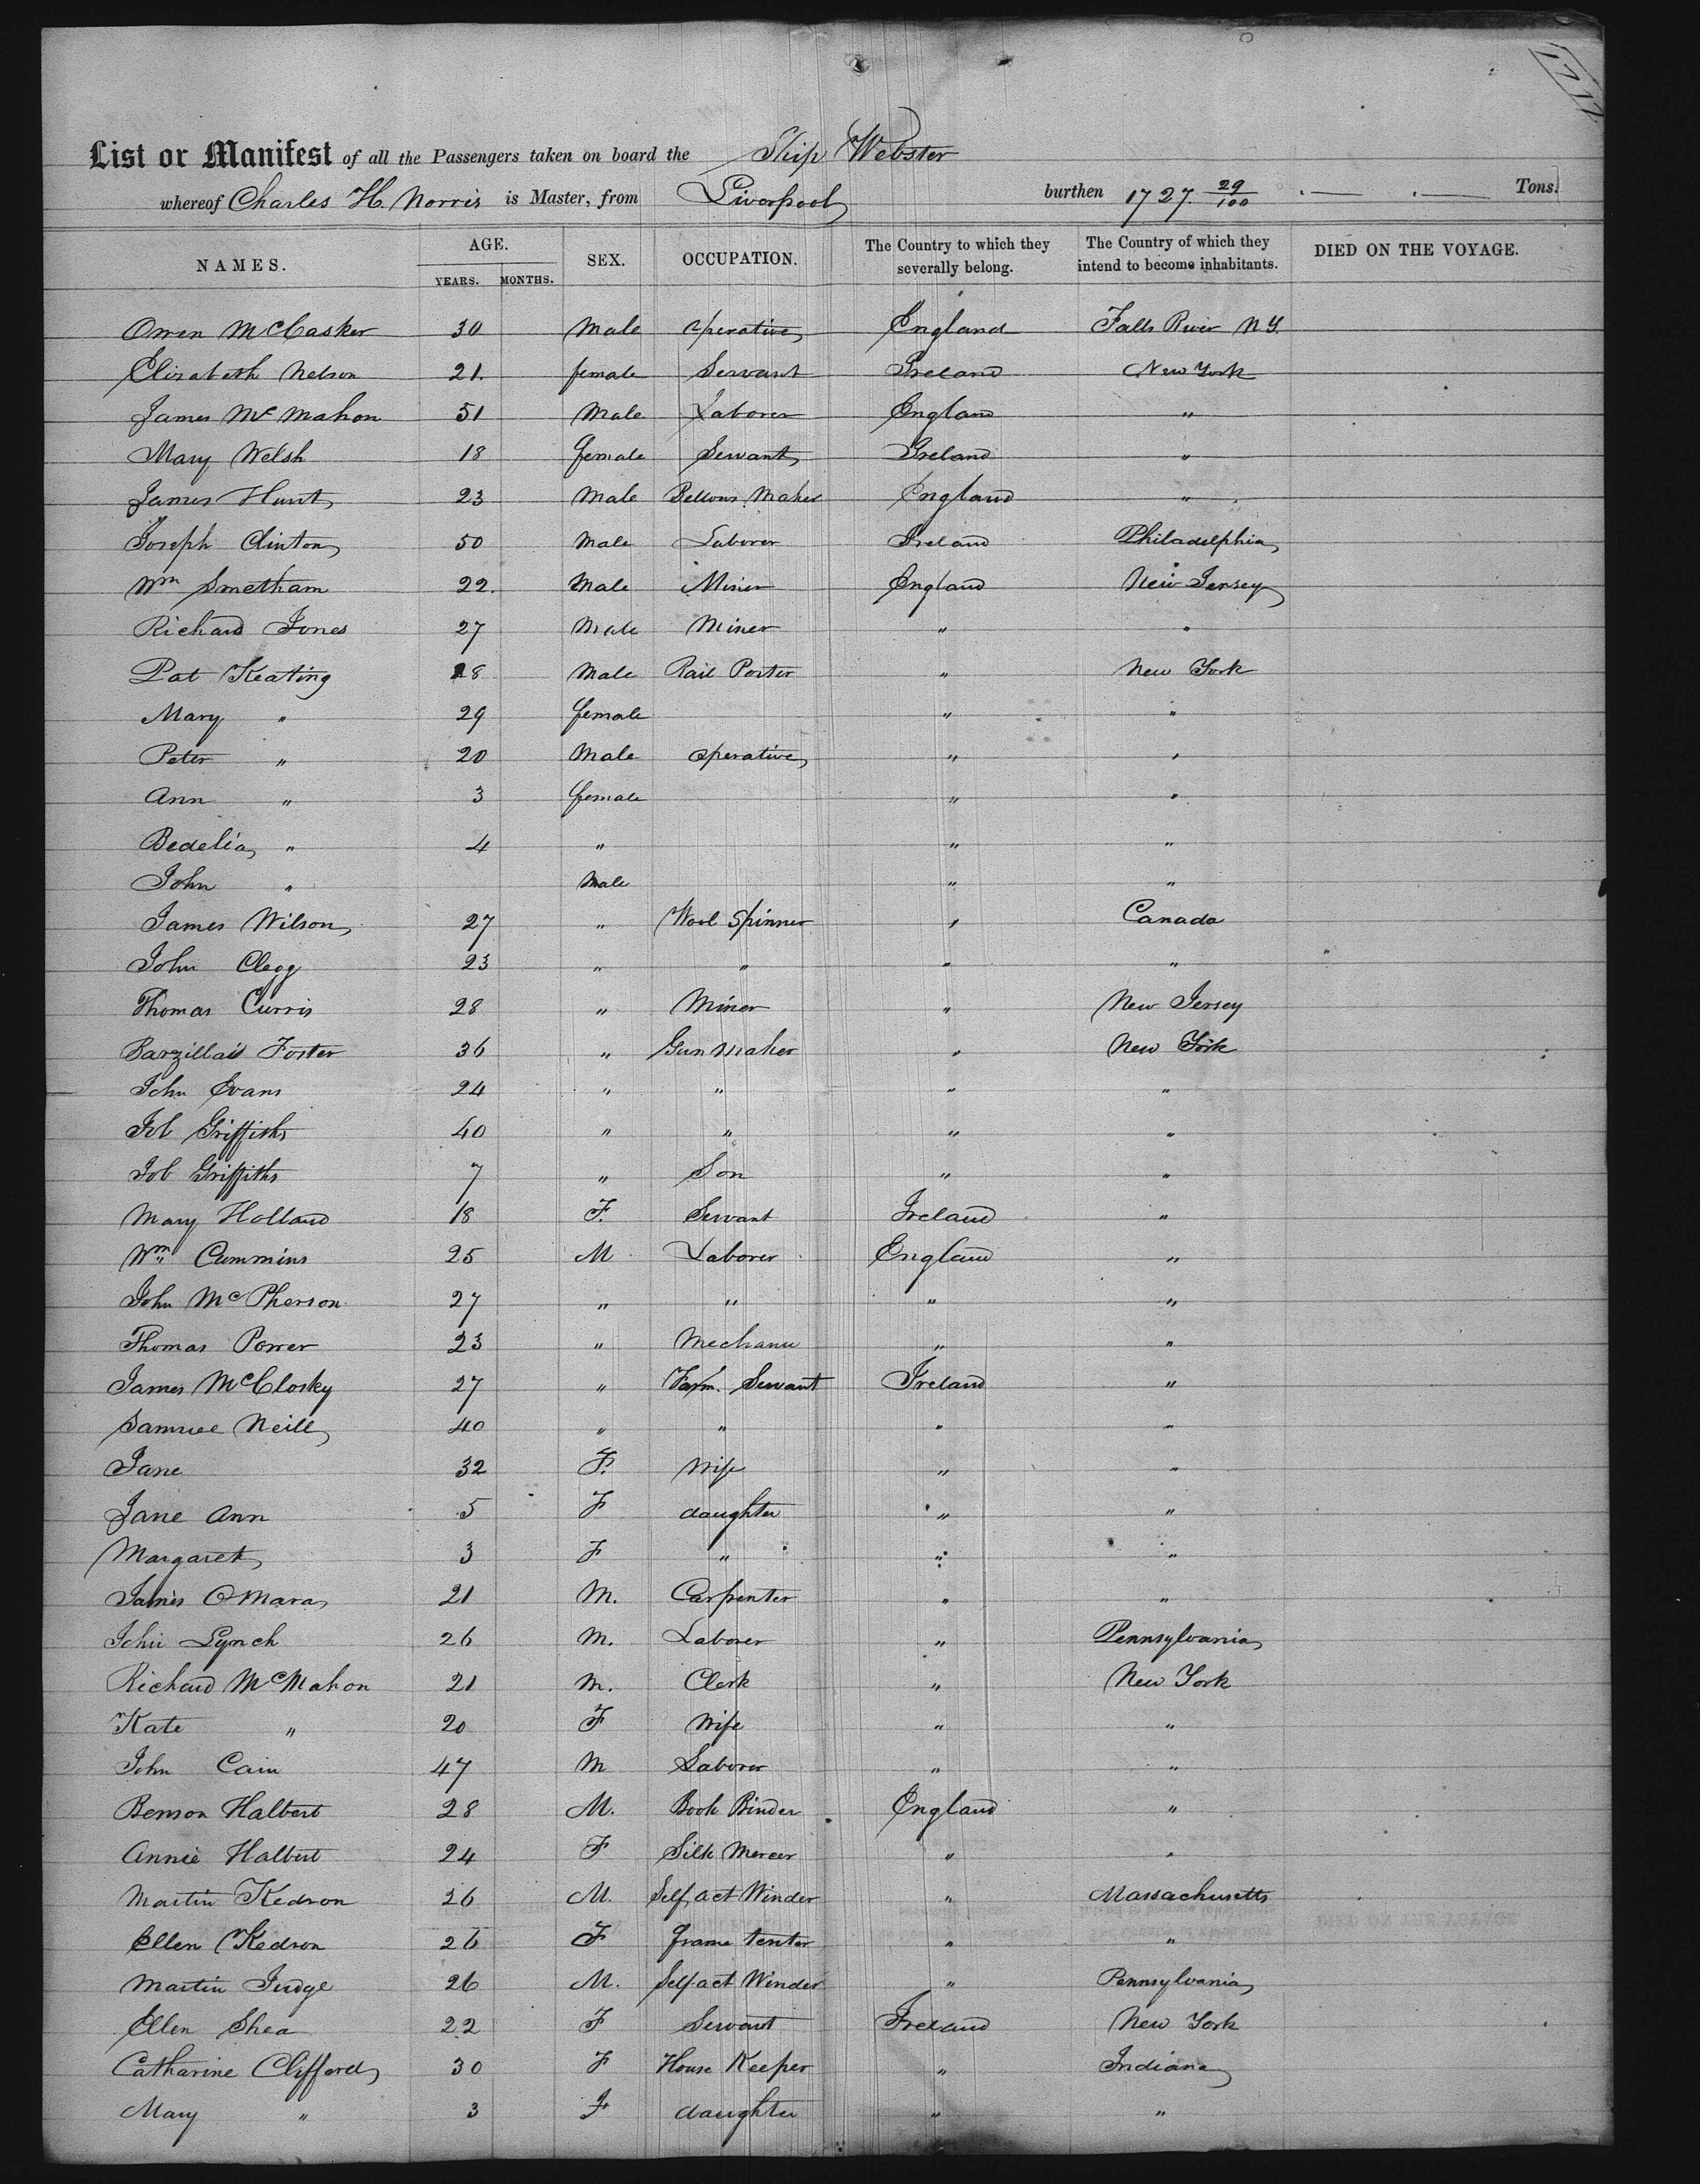 1711
List or Manifest of all the Passengers taken on board the Ship Webster
whereof Charles H. Norris is Master, from Liverpool burthen 1727. 29/100 Tons.
NAMES. AGE. YEARS. MONTHS. SEX. OCCUPATION. The Country to which they severally belong. The Country of which they intend to become inhabitants. DIED ON THE VOYAGE.
Owen McCasker 30 Male operative England Falls River N.Y.
Elizabeth Nelson 21. female Servant Ireland New York
James Mc Mahon 51 Male Laborer England "
Mary Welsh 18 female Servant Ireland "
James Hunt 23 Male Bellows Maker England "
Joseph Clinton 50 Male Laborer Ireland Philadelphia
Wm Smetham 22. Male Miner England New Jersey
Richard Jones 27 Male Miner " "
Pat Keating 28 Male Rail Porter " New York
Mary " 29 female " "
Peter " 20 Male operative " "
Ann " 3 female " "
Bedelia " 4 " " "
John " Male " "
James Wilson 27 " Wool Spinner " Canada
John Clegg 23 " " " "
Thomas Curris 28 " Miner " New Jersey
Barzillai Foster 36 " Gun Maker " New York
John Evans 24 " " " "
Job Griffiths 40 " " " "
Job Griffiths 7 " Son " "
Mary Holland 18 F. Servant Ireland "
Wm Cummins 25 M Laborer England "
John McPherson 27 " " " "
Thomas Power 23 " Mechanic " "
James McClosky 27 " Farm. Servant Ireland "
Samuel Neill 40 " " " "
Jane 32 F. Wife " "
Jane Ann 5 F daughter " "
Margaret 3 F " " "
James OMara 21 M. Carpenter " "
John Lynch 26 M. Laborer " Pennsylvania
Richard McMahon 21 M. Clerk " New York
Kate " 20 F Wife " "
John Cain 47 M Laborer " "
Benson Halbert 28 M. Book Binder England "
Annie Halbert 24 F Silk Mercer " "
Martin Kedron 26 M. Self act Winder " Massachusetts
Ellen Kedron 26 F frame tenter " "
Martin Judge 26 M. Self act Winder " Pennsylvania
Ellen Shea 22 F Servant Ireland New York
Catharine Clifford 30 F House Keeper " Indiana
Mary " 3 F daughter " "